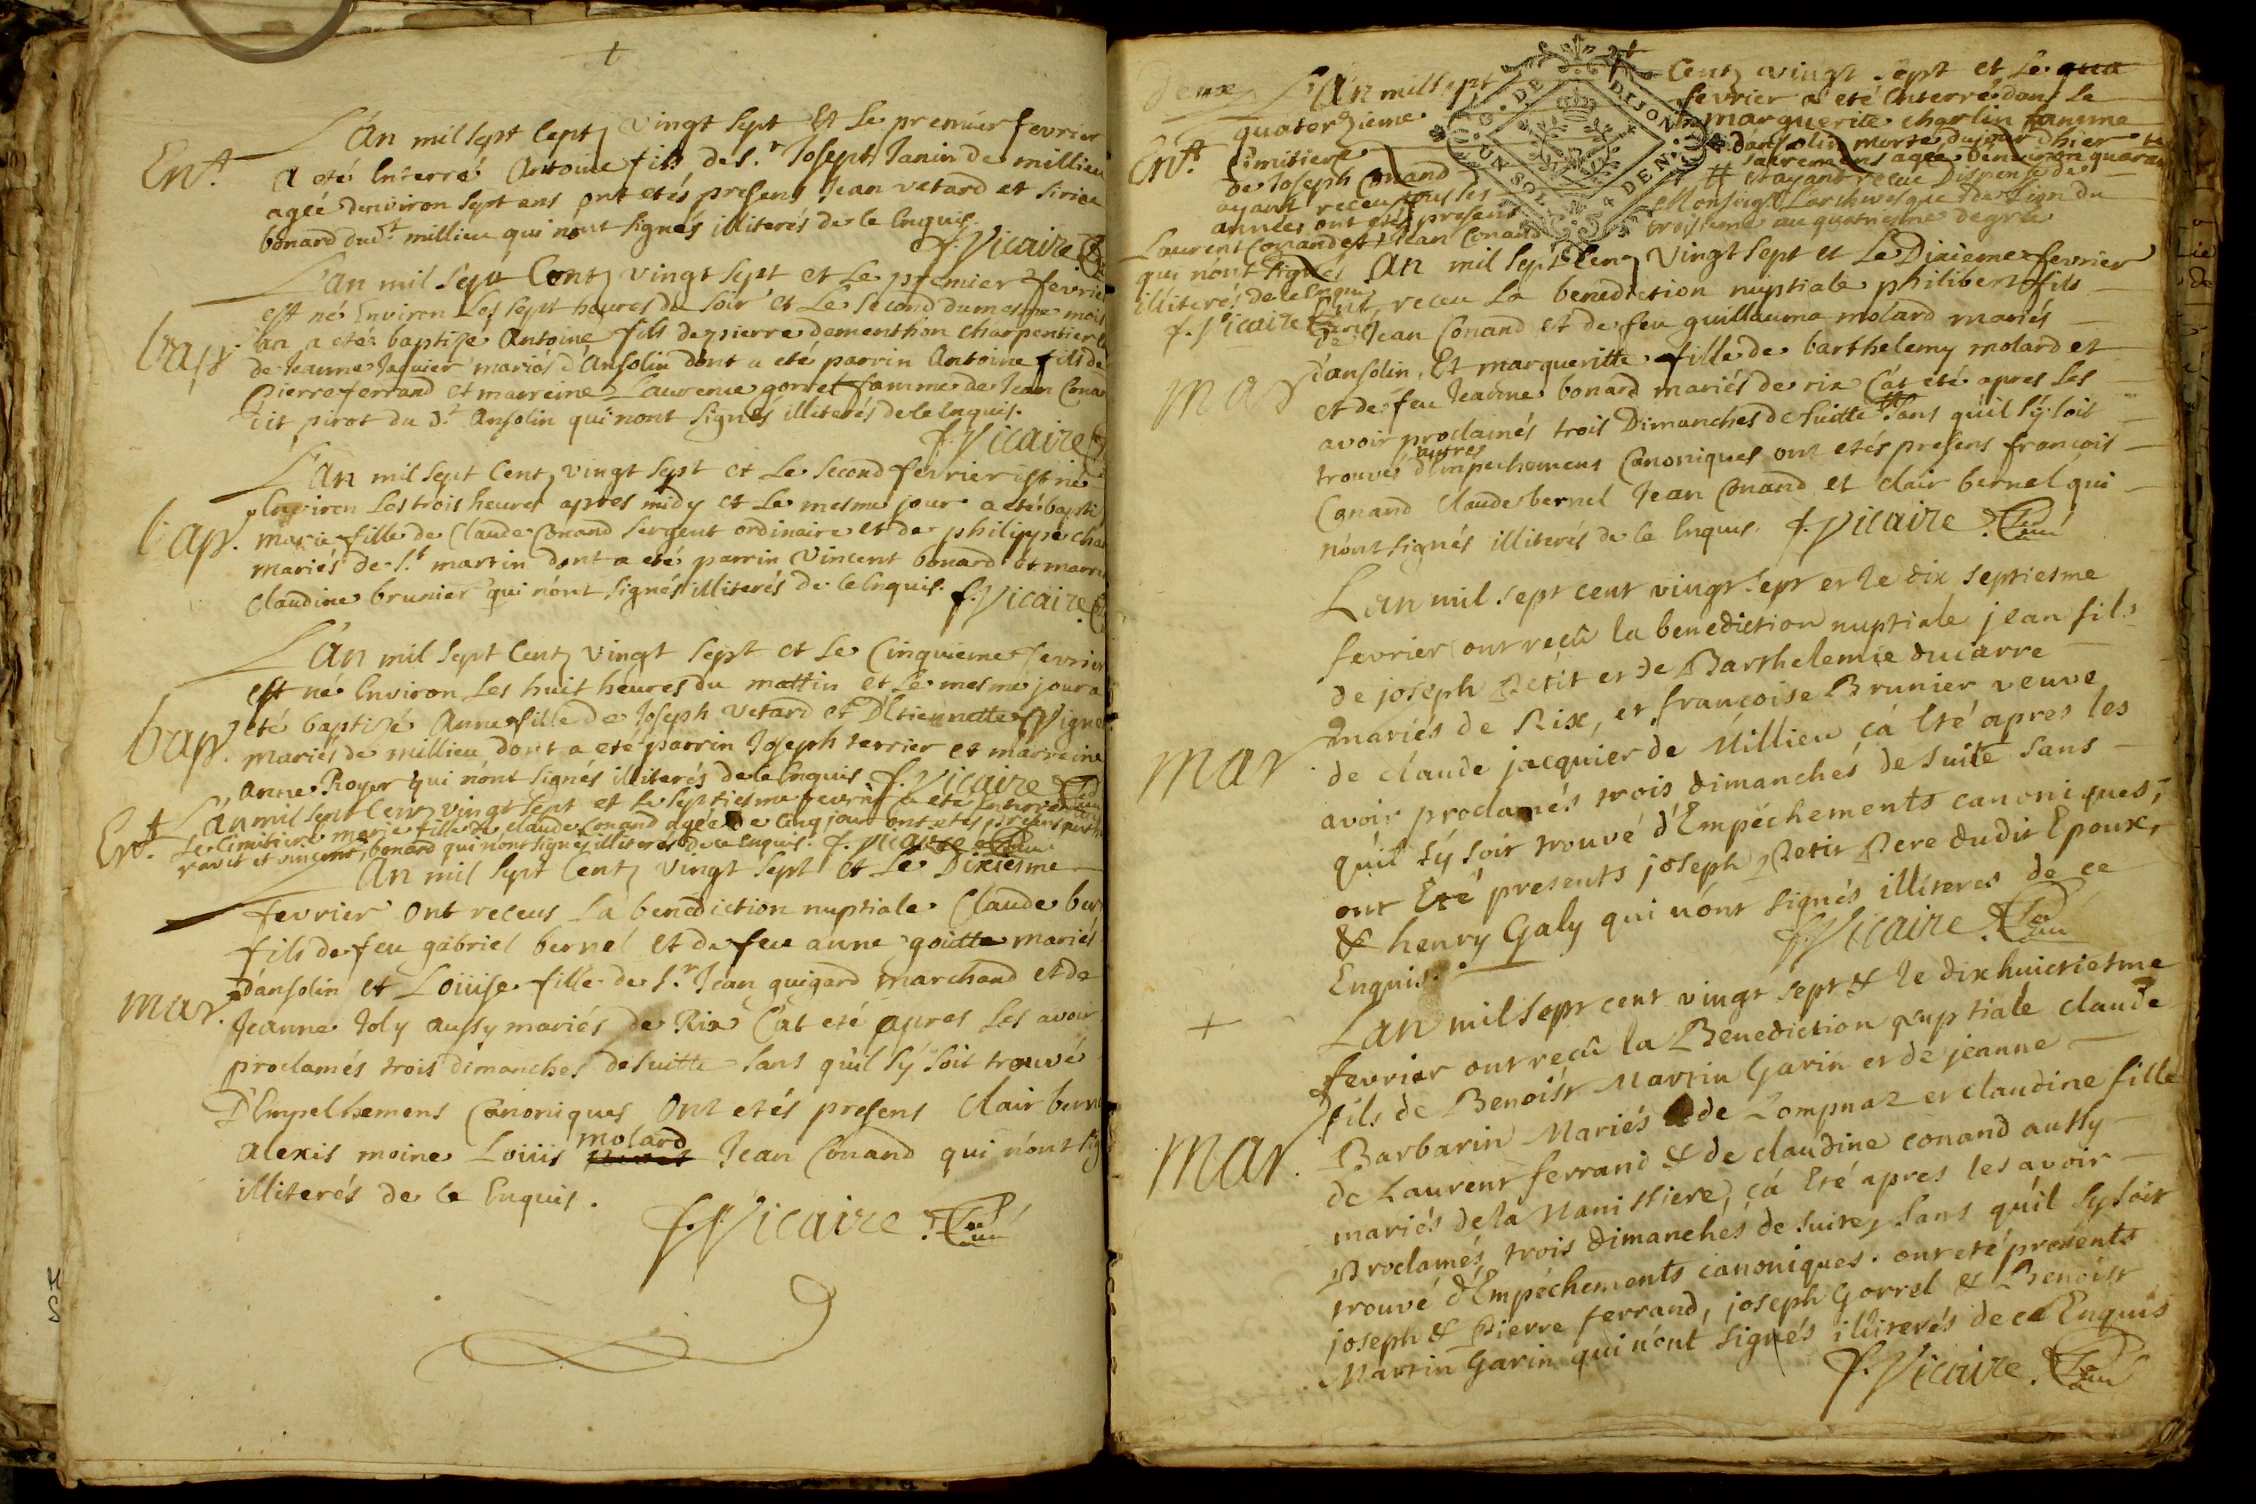 L'An mil sept Cent vingt sept Et Le premier fevrier
Ent.
a eté Enterré Antoine fils de S.r Joseph Janin de millieu
ageé denviron sept ans ont etés presens Jean vetard et
bonard dud.t millieu qui n'ont signés illiterés de ce Enquis.
f. Vicaire
L'an mil sept Cent vingt sept et Le premier fevrier
est né Environ Les sept heures du soir et Le second du mesme mois
bap.
an a eté baptizé Antoine fils de pierre dementhon charpentier
de Jeanne Jaquier mariés d'Ansolin dont a eté parrin Antoine fils de
Pierre ferrand et marreine Laurence gorrel famme de Jean Conand
dit pirot du d.t Ansolin qui n'ont signés illiterés de ce Enquis.
f. Vicaire
L'An mil sept Cent vingt sept et Le second fevrier est né
Environ Les trois heures apres midy et Le mesme jour a eté bapti
bap.
marie fille de Claude Conand sergent ordinaire et de philippe
mariés de S.t martin dont a eté parrin Vincent bonard et marre
Claudine brunier qui n'ont signés illiterés de ce Enquis. f. Vicaire
L'An mil sept Cent vingt sept et Le Cinquieme fevrier
est né Environ Les huit heures du mattin et Le mesme jour a
bap.
eté baptizé Anne fille de Joseph vetard et D'Etiennette
mariés de millieu dont a eté parrin Joseph terrier et marreine
anne Royer qui n'ont signés illiterés de ce Enquis f. Vicaire
L'an mil sept Cent vingt sept et Le septiesme fevrier a eté Enterré dans
Ent.
Le Cimitiere marie fille de claude Conand ageé de Cinq jours ont etés presens
ravit et vincent bonard qui n'ont signés illiterés de ce Enquis. f. Vicaire
L'An mil sept Cent vingt sept Et Le Dixiesme
fevrier ont receus La benediction nuptiale Claude ber
fils de feu gabriel bernel Et de feue anne goutte mariés
d'ansolin et Louise fille de S.r Jean guigard marchand et de
mar.
Jeanne Joly aussy mariés de Rix Cât eté apres Les avoir
proclamés trois dimanches de suitte sans qu'il s'y soit trouvé
D'Empechemens Canoniques ont etés presens Clair bern
alexis moine Louis molard Jean Conand qui n'ont sig
illiterés de ce Enquis.
f. Vicaire
Deux
L'An mil sept Cent vingt sept et Le qua
quatorzieme fevrier a eté Enterré dans Le
Ent.
Cimitiere marguerite charlin famme
de Joseph Conand d'ansolin morte du jour d'hier
ayant receu tous ses sacremens agée denviron quaran
années ont etés presens
Laurent Conand et Jean Conand
qui n'ont signés
illiterés de ce Enquis
f. Vicaire
# Et ayant receue Dispense de
Monseig.r L'archevesque de Lion du
troisieme au quatriesme degré
G. DE DIJON
UN SOL 4 DEN.
L'An mil sept Cent Vingt sept et Le Dixieme fevrier
Ont receu La benediction nuptiale philibert fils
de Jean Conand et de feu guillauma molard mariés
mar
d'ansolin. Et margueritte fille de barthelemy molard et
et de feu Jeanne bonard mariés de rix Cât eté apres Les
avoir proclamés trois Dimanches de suitte # sans qu'il s'y soit
trouvés d'autres Empechemens Canoniques ont etés presens francois
Conand Claude bernel Jean Conand et clair bernel qui
n'ont signés illiterés de ce Enquis. f. Vicaire
L'an mil sept cent vingt sept et le dix septiesme
fevrier ont reçû la benediction nuptiale jean fils
de joseph Petit et de Barthelemie ducarre
mariés de Rix, et françoise Brunier veuve
mar.
de claude jacquier de Millieu çá Eté apres les
avoir proclamés trois dimanches de suite sans
qu'il s'y soit trouvé d'Empéchements canoniques,
ont Eté presents joseph Petit Pere dudit Epoux,
& henry Galy qui n'ont signés illiteres de ce
Enquis.
f. Vicaire
L'an mil sept cent vingt sept & le dix huictiesme
fevrier ont reçû la Benediction nuptiale claude
fils de Benoist Martin Garin et de jeanne
mar.
Barbarin Mariés de Lompnaz et claudine fille
de Laurent ferrand & de claudine conand aussy
mariés de la Manissiere, çá Eté apres les avoir
Proclamés trois dimanches de suite, sans qu'il s'y soit
trouvé d'Empéchements canoniques. ont eté presents
joseph & Pierre ferrand, joseph Gorrel & Benoist
Martin Garin qui n'ont signés illiterés de ce Enquis
f. Vicaire.